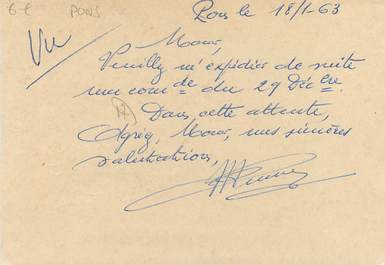 6 € PONS
Pons le 18/1-63
Vu
Monsr,
Veuillez m'expédier de suite
ma comde du 29 Décbre.
Dans cette attente,
Agréez, Monsr, mes sincères
salutations,